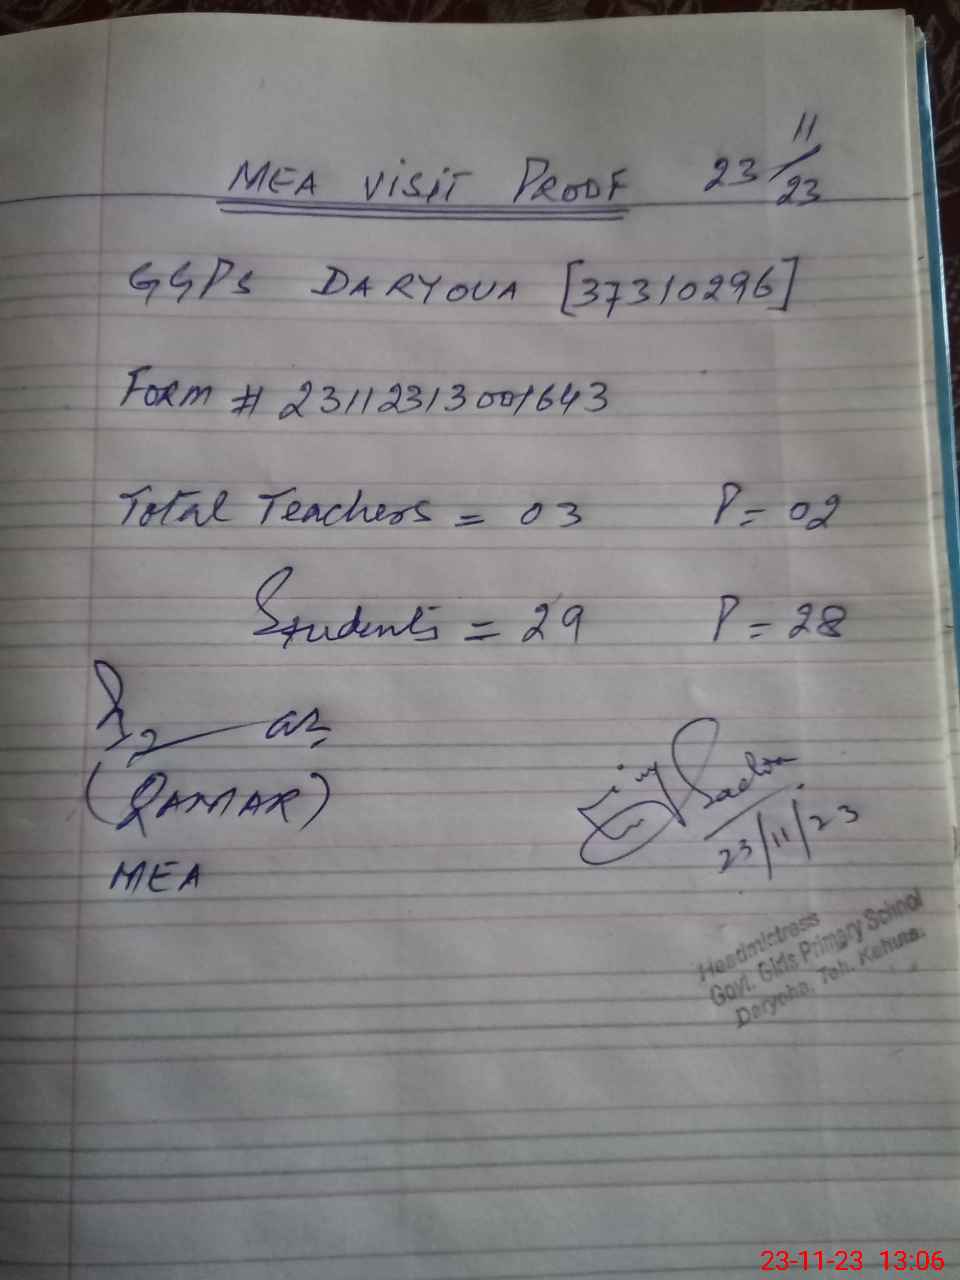 MEA VISIT PROOF 23/11/23
GGPS DARYOUA [37310296]
Form # 23112313001643
Total Teachers = 03 P = 02
Students = 29 P = 28
(QAMAR)
MEA
23/11/23
Headmistress
Govt. Girls Primary School
Daryoha, Teh. Kahuta.
23-11-23 13:06